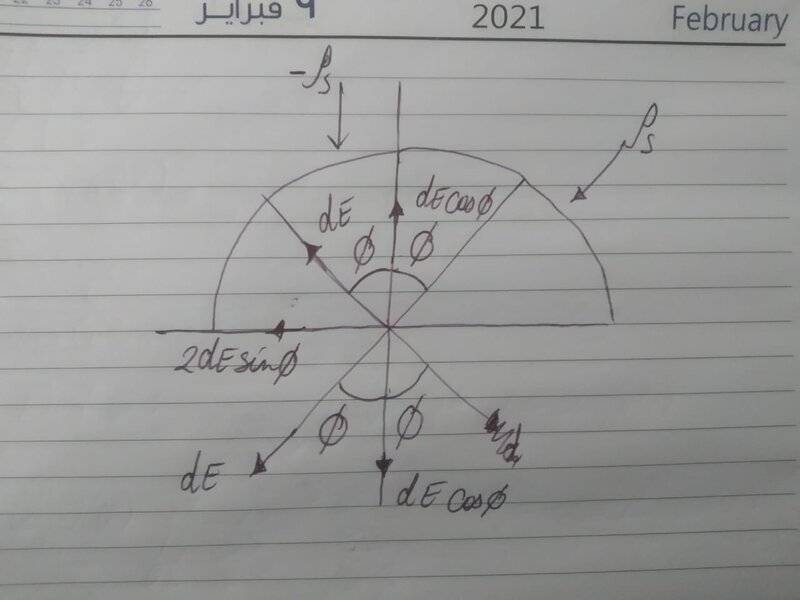 22 23 24 25 26
٩ فبراير
2021
February
-ρs
ρs
dE
dE cosϕ
ϕ ϕ
2dE sinϕ
ϕ ϕ
dE
dE cosϕ